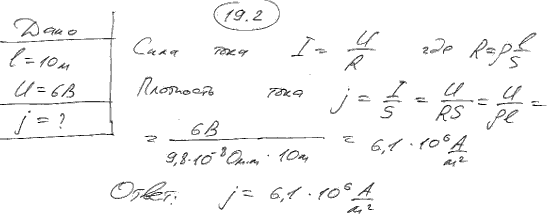 19.2
Дано
l = 10м
U = 6В
j = ?
Сила тока I = U/R где R = ρ l/S
Плотность тока j = I/S = U/RS = U/ρl =
= 6В / 9,8·10⁻⁸ Ом·м · 10м = 6,1 · 10⁶ А/м²
Ответ: j = 6,1 · 10⁶ А/м²